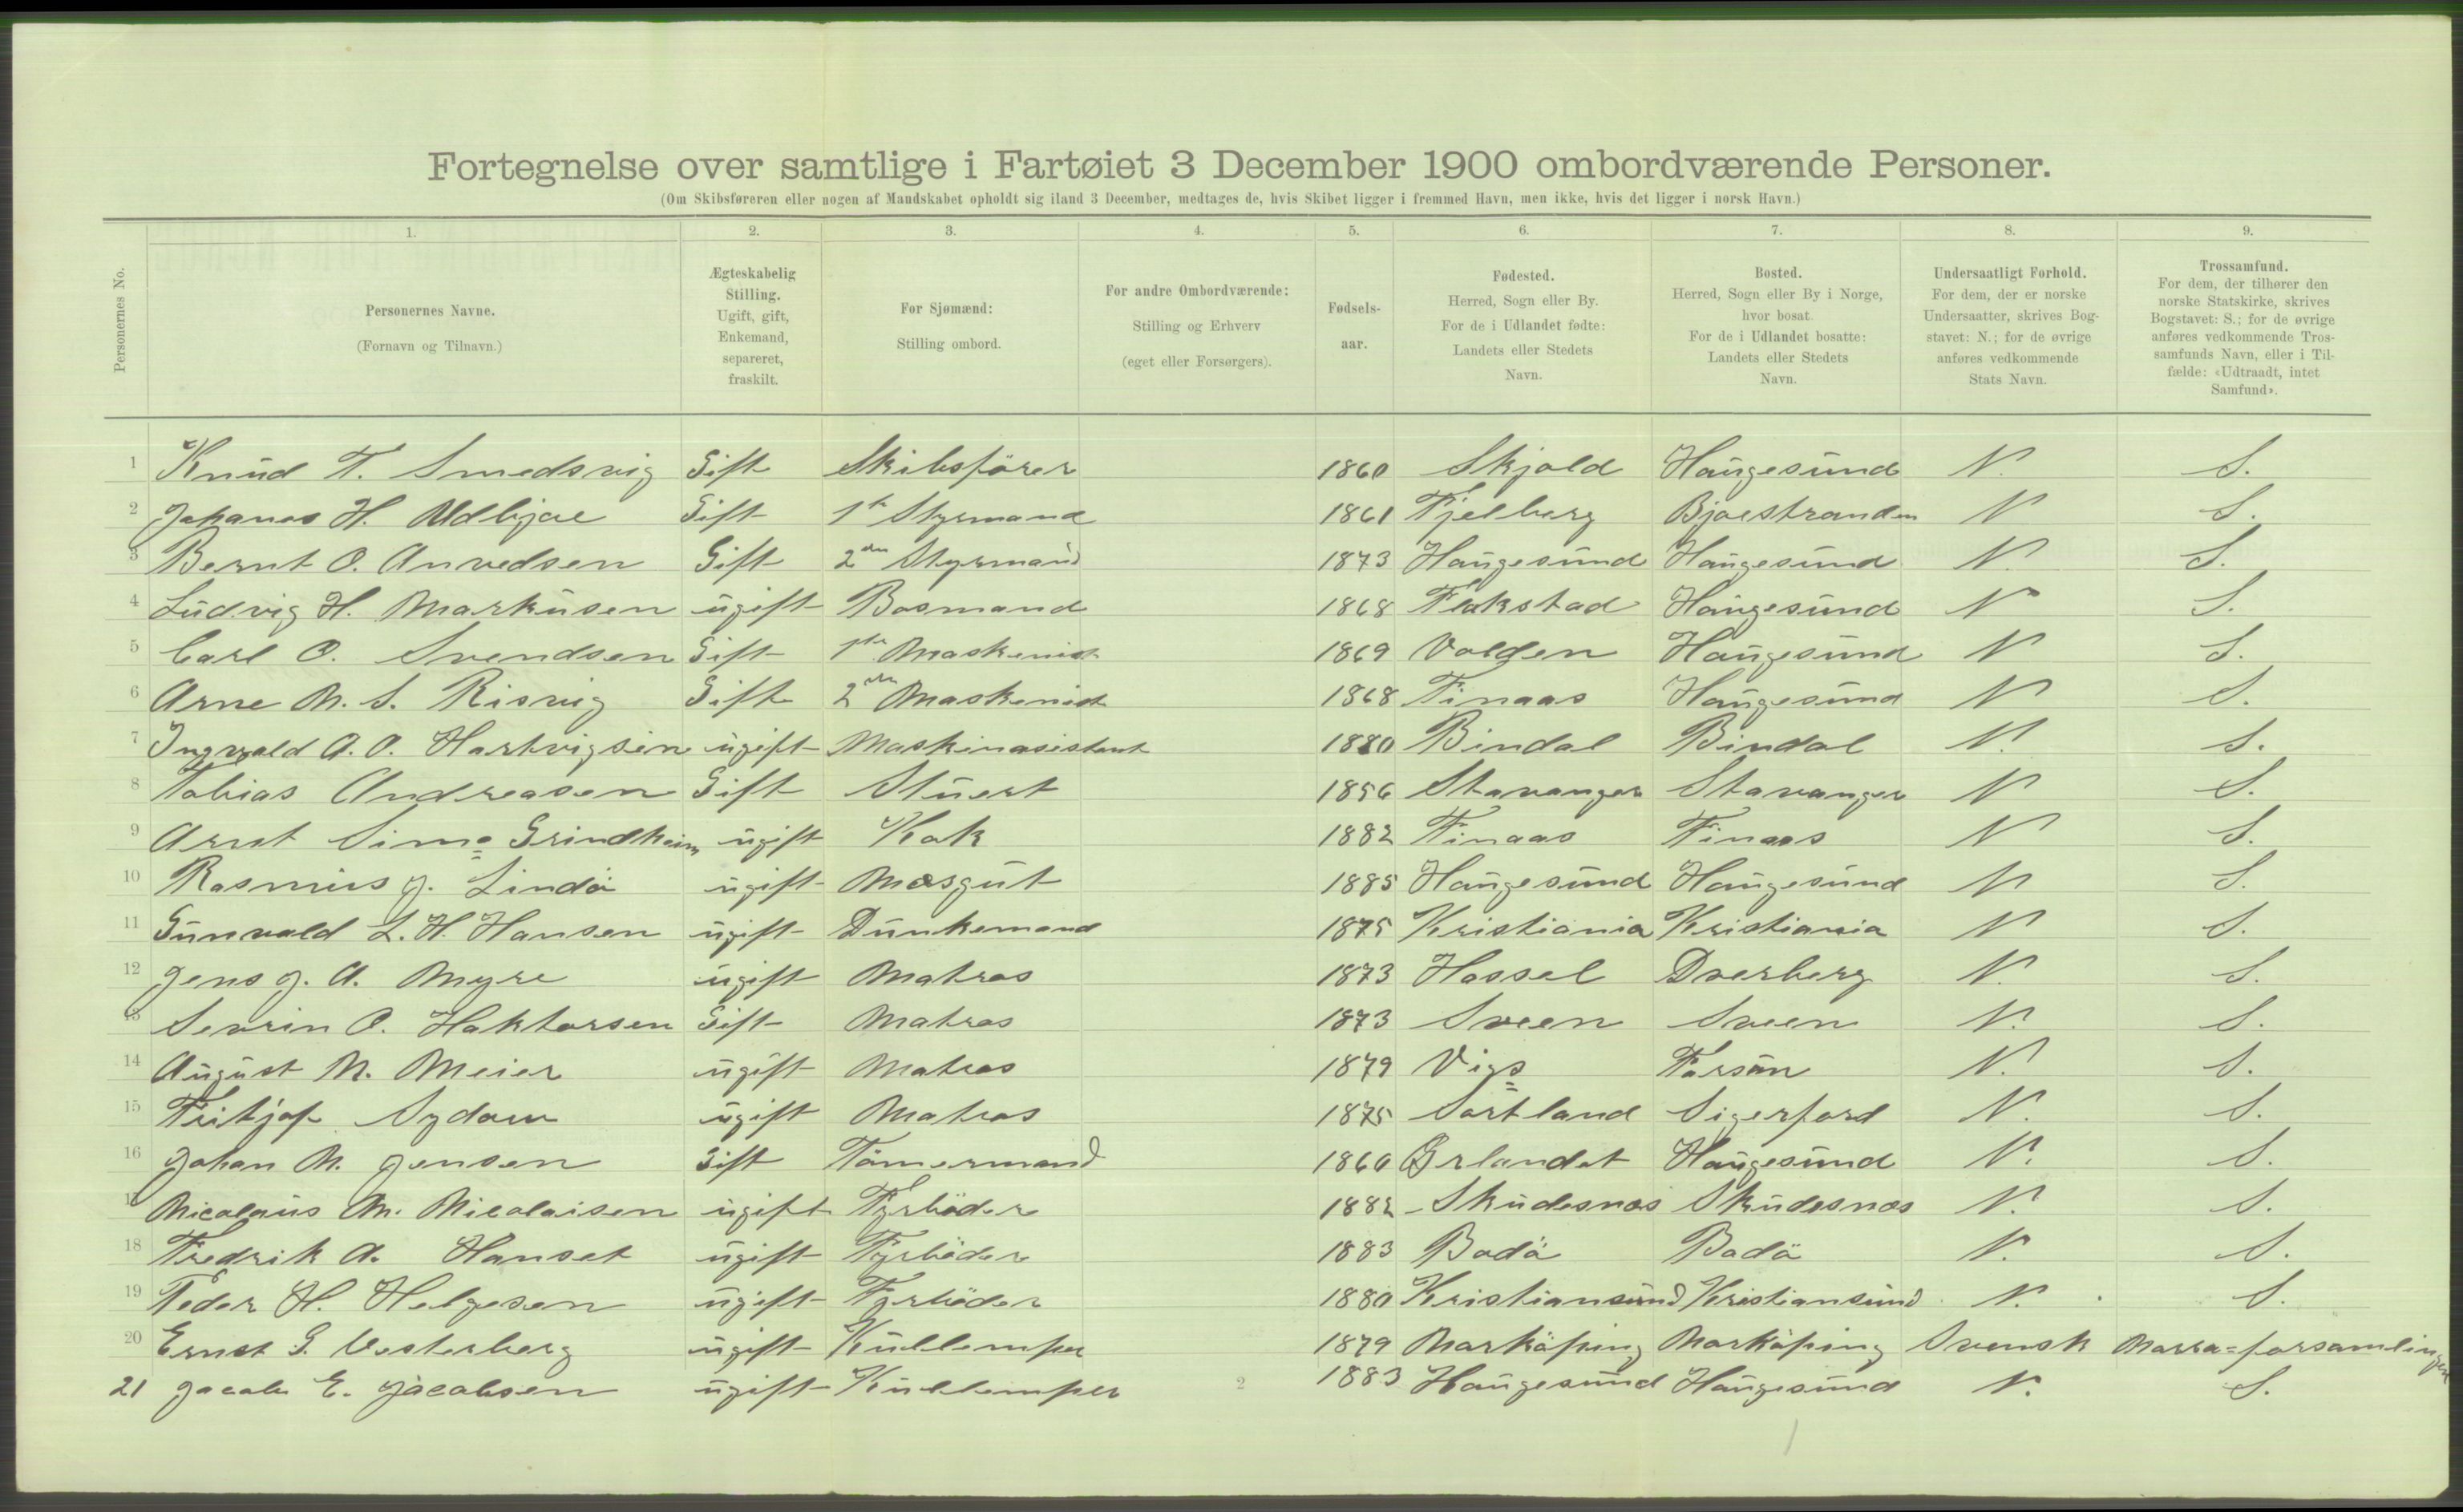 Fortegnelse over samtlige i Fartøiet 3 December 1900 ombordværende Personer.
(Om Skibsføreren eller nogen af Mandskabet opholdt sig iland 3 December, medtages de, hvis Skibet ligger i fremmed Havn, men ikke, hvis det ligger i norsk Havn.)
Personernes No. 1. 2. 3. 4. 5. 6. 7. 8. 9.
Personernes Navne. (Fornavn og Tilnavn.)
Ægteskabelig Stilling. Ugift, gift, Enkemand, separeret, fraskilt.
For Sjømænd: Stilling ombord.
For andre Ombordværende: Stilling og Erhverv (eget eller Forsørgers).
Fødsels-aar.
Fødested. Herred, Sogn eller By. For de i Udlandet fødte: Landets eller Stedets Navn.
Bosted. Herred, Sogn eller By i Norge, hvor bosat. For de i Udlandet bosatte: Landets eller Stedets Navn.
Undersaatligt Forhold. For dem, der er norske Undersaatter, skrives Bogstavet: N.; for de øvrige anføres vedkommende Stats Navn.
Trossamfund. For dem, der tilhører den norske Statskirke, skrives Bogstavet: S.; for de øvrige anføres vedkommende Trossamfunds Navn, eller i Tilfælde: «Udtraadt, intet Samfund».
1 Knud T. Smedsvig Gift Skibsförer 1860 Skjold Haugesund N. S.
2 Johanes H. Gift 1ste Styrmand 1861 Fjelberg Bjoestranden N S.
3 Bernt O. Anvedsen Gift 2den Styrmand 1873 Haugesund Haugesund N. S.
4 Ludvig H. Markusen ugift Bosmand 1868 Flakstad Haugesund N S.
5 Carl O. Svendsen Gift 1ste Maskenist 1869 Volden Haugesund N S.
6 Arne M. S. Risvig Gift 2den Maskenist 1868 Finaas Haugesund N S.
7 Ingvald A. O. Hartvigsen ugift Maskinasistent 1880 Bindal Bindal N. S.
8 Tobias Andreasen Gift Stuert 1856 Stavanger Stavanger N S.
9 Arnt Grindheim ugift Kok 1882 Finaas Finaas N S.
10 Rasmus J. Lindö ugift Mesgut 1885 Haugesund Haugesund N S.
11 Gunvald L. H. Hansen ugift Dunkemand 1875 Kristiania Kristiania N S.
12 Jens J. A. Myre ugift Matros 1873 Hassel Dverberg N. S.
13 Sevrin O. Haktorsen Gift Matros 1873 Sveen Sveen N. S.
14 August M. Meier ugift Matros 1879 Farsun N. S.
15 Fritjof Sydow ugift Matros 1875 Sortland Sigerford N. S.
16 Johan M. Jensen Gift Tömermand 1860 Ørlandet Haugesund N. S.
17 Nicolaus M. Nicolaisen ugift Fyrböder 1882 Skudesnæs Skudesnæs N. S.
18 Fredrik A. Hanset ugift Fyrböder 1883 Bodö Bodö N. S.
19 Peder H. Helgesen ugift Fyrböder 1880 Kristiansund Kristiansund N. S.
20 Ernst G. Vesterberg ugift Kullemper 1879 Norköping Norköping Svensk
21 Jacob E. Jacobsen ugift Kullemper 1883 Haugesund Haugesund N. S.
2